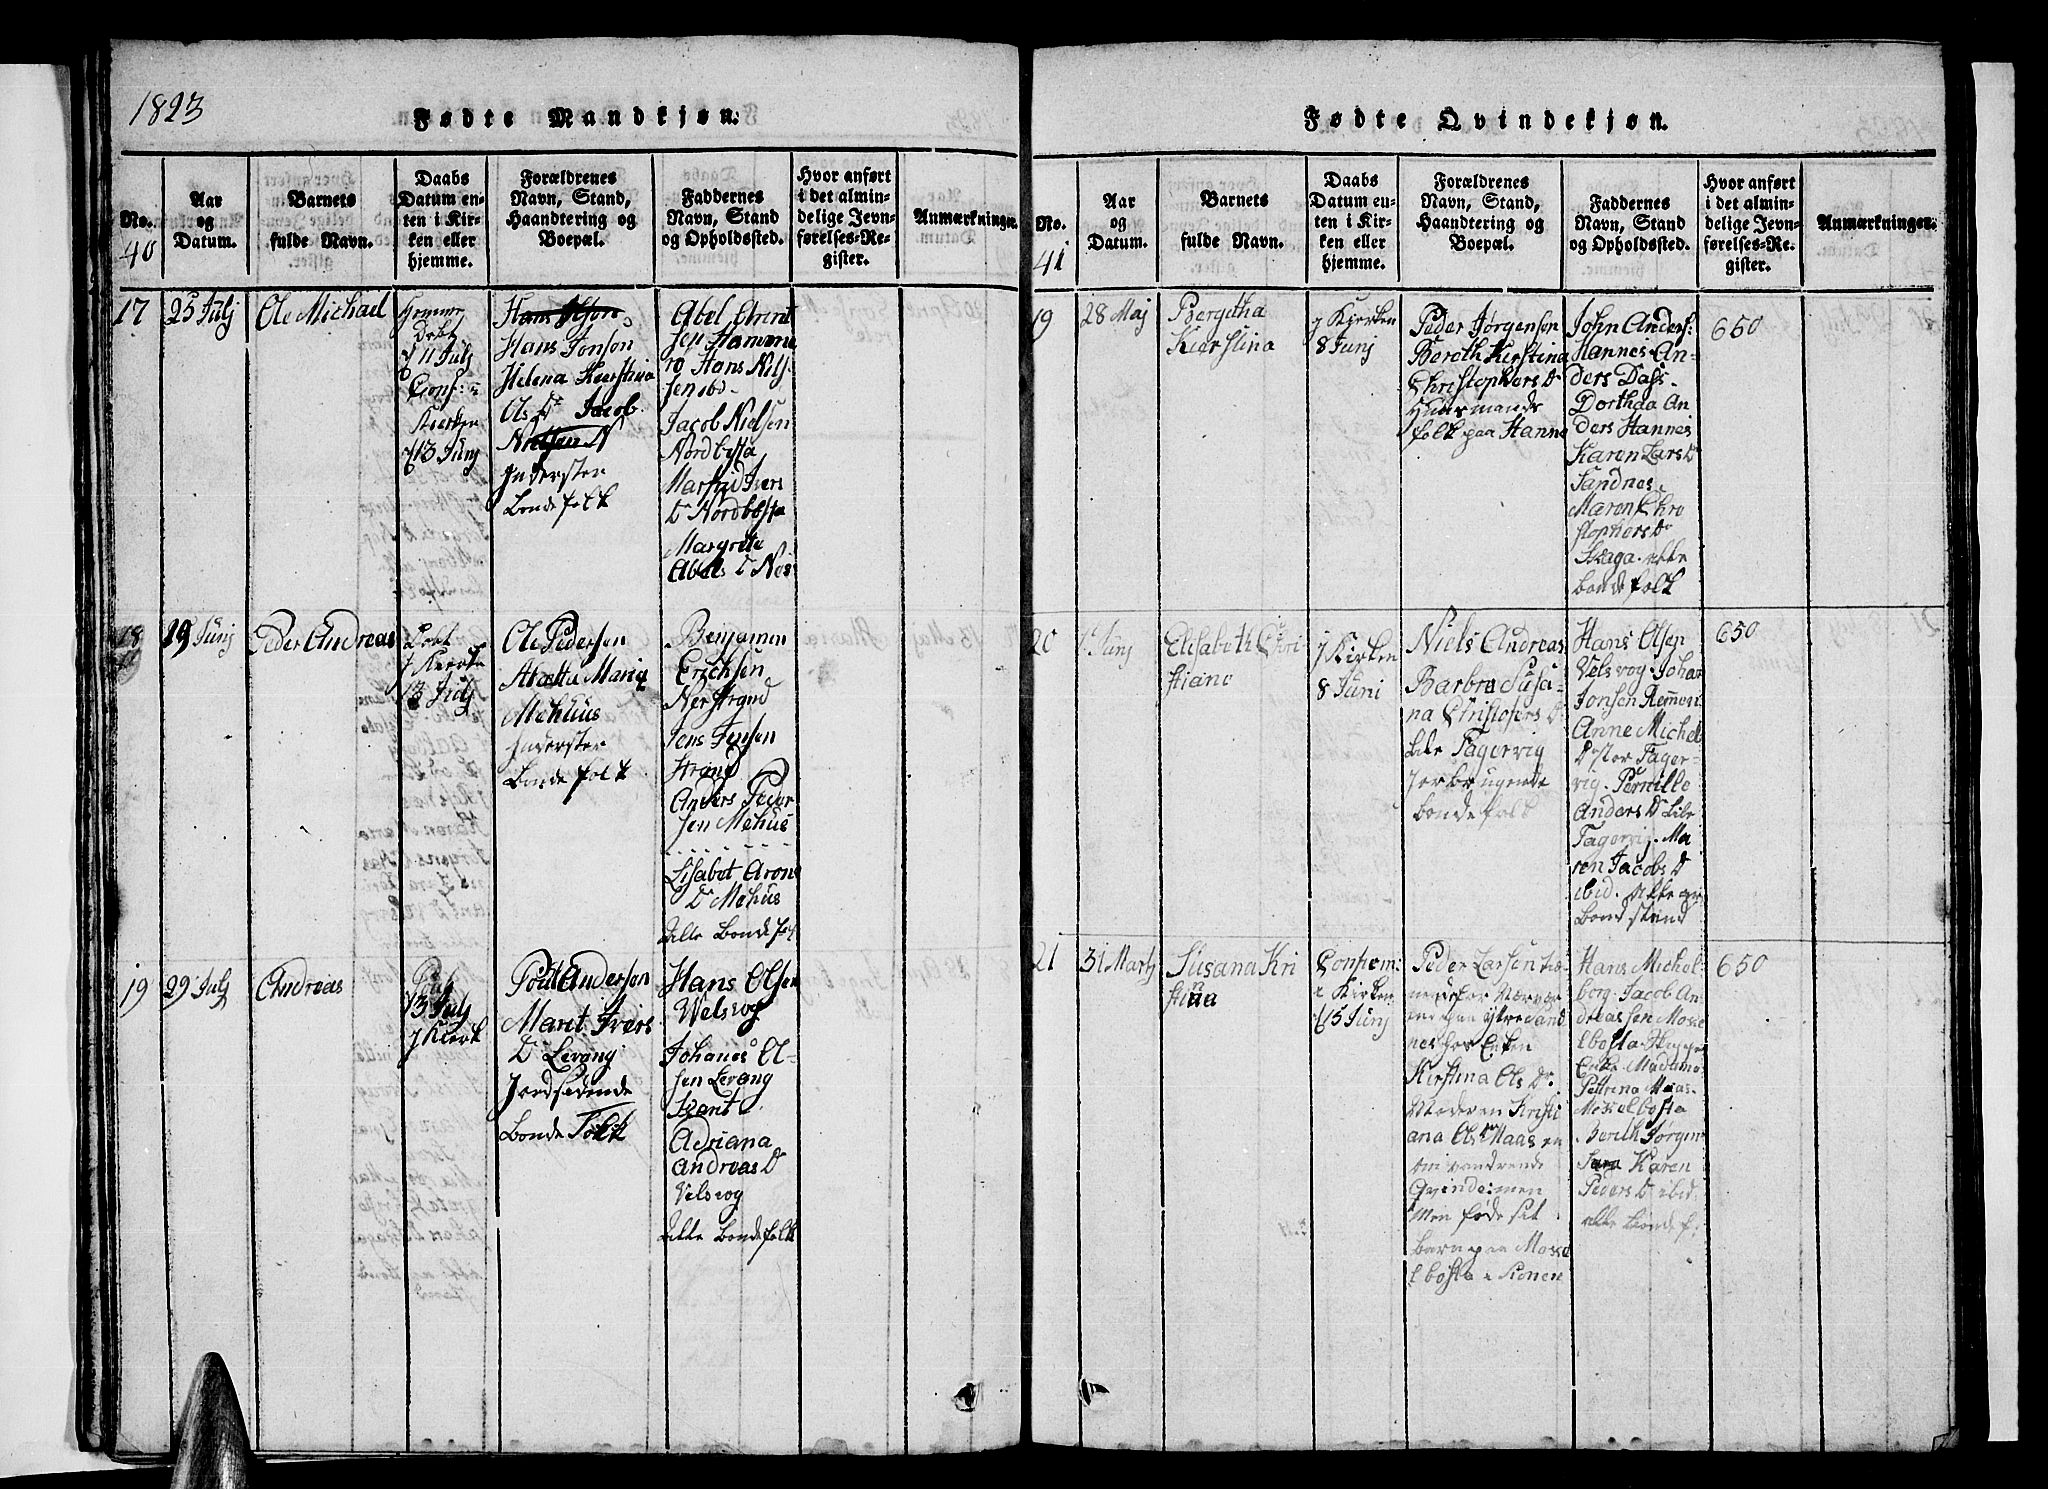 1823
Fødte Mandkjøn.
No.
40
Aar
og
Datum.
Barnets
fulde Navn.
Daabs
Datum en-
ten i Kir-
ken eller
hjemme.
Forældrenes
Navn, Stand,
Haandtering og
Boepæl.
Faddernes
Navn, Stand
og Opholdssted.
Hvor anført
i det almin-
delige Jevn-
førelses-Re-
gister.
Anmærkninger.
17
25 Julj
Ole Michael
Hemme
Døbt
11 Julj
Conf: i
Kierken
13 Junj
Hans Olson
Hans Jonson
Helena Kierstina
Ols Dr Jacob
Nielsen N
Inderster
Bondefolk
Abel Arent
sen Hamme
rø Hans Nils
sen ibd-
Jacob Nielsen
Nordbøsta
Marfrid Ivers
Dr Nordbøsta
Margrete
Abels D Nes
18
29 Junj
Peder Andreas
Døbt
j Kierke
13 Julj
Ole Pedersen
Maria
Mehuus
Inderster
Bondefolk
Benjamen
Ericksen
Nerstrand
Jens Jensen
Strand
Anders Peder
sen Mehus
Lisabet Arons
D Mehus
Alle Bondefolk
19
29 Julj
Andreas
13 Julj
j Kierk
Poul Anderson
Marit Ivers
Dr Levang
Jordsidende
Bonde Folk
Hans Olsen
Welsvog
Johanes Ol-
sen Levang
Adriana
Andreas D
Velsvog
Alle Bondefolk
Fødte Qvindekjøn.
No.
41
Aar
og
Datum.
Barnets
fulde Navn.
Daabs
Datum en-
ten i Kir-
ken eller
hjemme.
Forældrenes
Navn, Stand,
Haandtering og
Boepæl.
Faddernes
Navn, Stand
og Opholdssted.
Hvor anført
i det almin-
delige Jevn-
førelses-Re-
gister.
Anmærkninger.
19
28 Maj
Bergitha
Kierstina
j Kierken
8 Junj
Peder Jørgensen
Beroth Kerstina
Christophers D
Huusmands
folk paa Hannes
John Anders:
Hannes. An-
ders Dass.
Dorthea An
ders Hannes
Karen Lars D
Sandnes
Maren Chri
stophers D
Skaga. alle
bondefolk
650
20
1 Junj
Elisabeth Chri-
stiane
j Kirken
8 Juni
Niels Andreas
Barbra Susa-
na Christofers D
Lile Fagervig
Jorbrugende
bondefolk
Hans Olsen
Velsvog. Johan
Jonsen Remmen
Anne Michels
Doster Fager-
vig. Pernille
Anders D Lile
Fagervig. Ma
ren Jacobs D
ibid. Alle av
Bondstand
650
21
31 Martj
Susana Kri
stina
Confirm:
i Kirken
15 Junj
Peder Larsen
paa ytre Sand
nes hos Enken
Kirstina Ols Dr
Moderen Kristi
ana Ols Dr Maas en
om vandrende
Qvinde: men
føde sit
barn paa Mosse
lbøsta i Stonen
Hans Michel
borg. Jacob An
dreassen Mosse
lbøsta.
Enke Madame
Pettrina Maas
Mosselbosta
Berith Jørgen
Karen
Peders D ibid.
alle bondef.
650